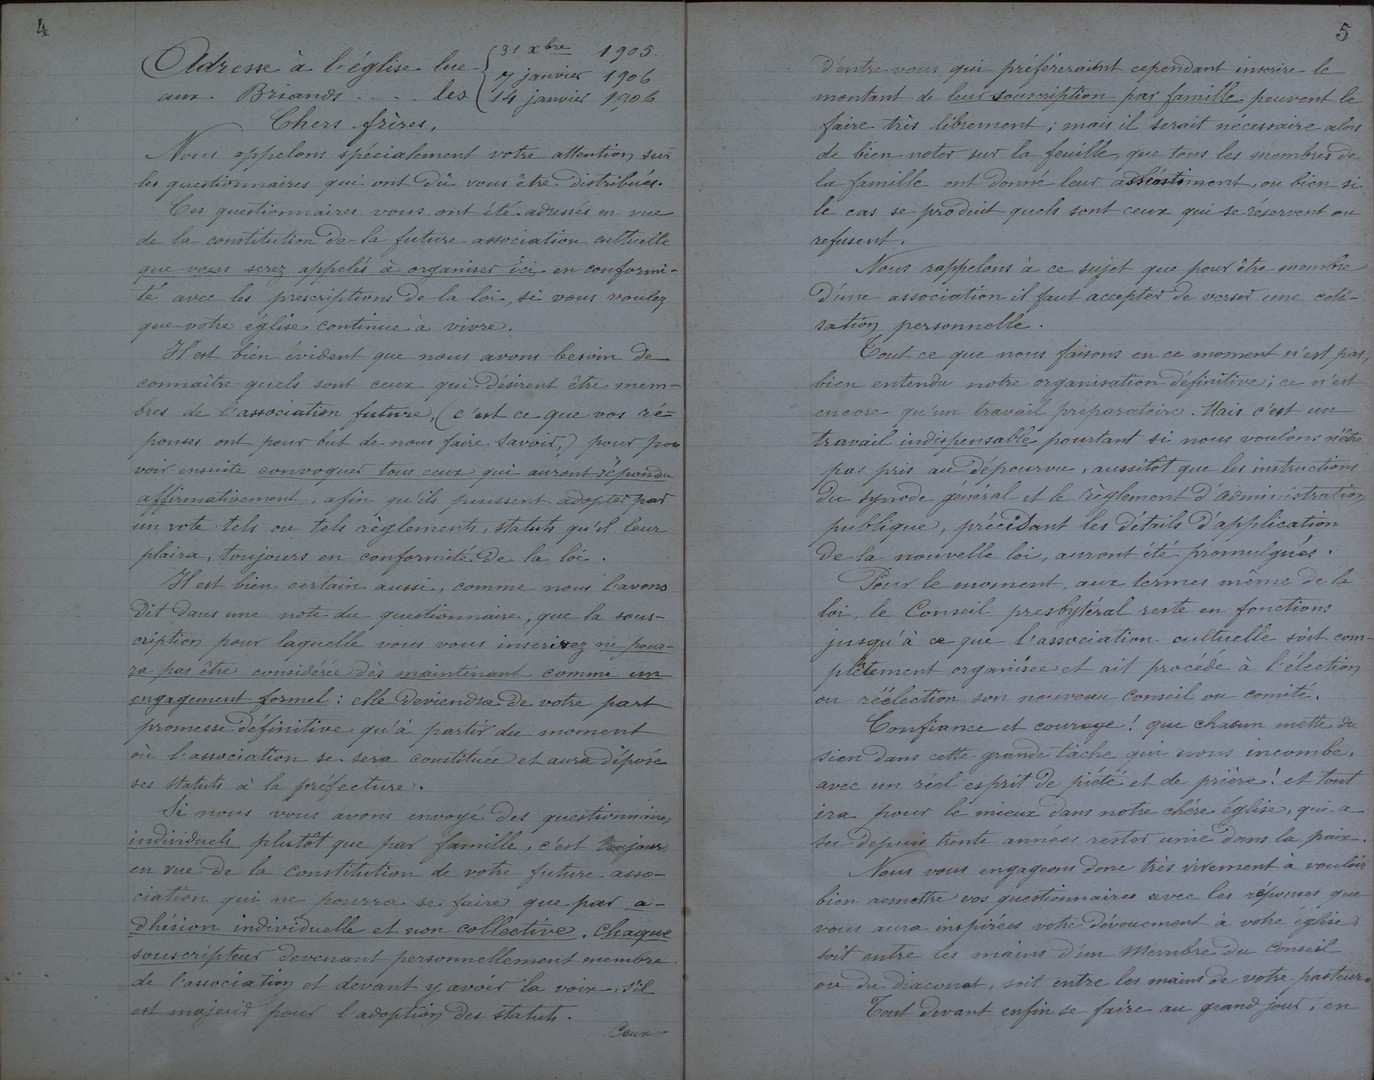 4
Adresse à l'église lue { 31 xbre 1905.
7 janvier 1906
aux Briands . - . . les 14 janvier 1906
Chers frères,
Nous appelons spécialement votre attention sur
les questionnaires qui ont dû vous être distribués.
Ces questionnaires vous ont été adressés en vue
de la constitution de la future association cultuelle
que vous serez appelés à organiser ici en conformi-
té avec les prescriptions de la loi, si vous voulez
que votre église continue à vivre.
Il est bien évident que nous avons besoin de
connaître quels sont ceux qui désirent être mem-
bres de l'association future, (c'est ce que vos ré-
ponses ont pour but de nous faire savoir,) pour pou
voir ensuite convoquer tous ceux qui auront répondu
affirmativement, afin qu'ils puissent adopter par
un vote tels ou tels règlements, statuts qu'il leur
plaira, toujours en conformité de la loi.
Il est bien certain aussi, comme nous l'avons
dit dans une note du questionnaire, que la sous-
cription pour laquelle vous vous inscrirez ne pour-
ra pas être considérée dès maintenant comme un
engagement formel : elle deviendra de votre part
promesse définitive qu'à partir du moment
où l'association se sera constituée et aura déposé
ses statuts à la préfecture.
Si nous vous avons envoyé des questionnaires
individuels plutôt que par famille, c'est toujours
en vue de la constitution de votre future asso-
ciation qui ne pourra se faire que par a-
dhésion individuelle et non collective. Chaque
souscripteur devenant personnellement membre
de l'association et devant y avoir la voix, s'il
est majeur pour l'adoption des statuts.
Ceux-
5
d'entre vous qui préféreraient cependant inscrire le
montant de leur souscription par famille peuvent le
faire très librement ; mais il serait nécessaire alors
de bien noter sur la feuille que tous les membres de
la famille ont donné leur assentiment, ou bien si
le cas se produit quels sont ceux qui se réservent ou
refusent.
Nous rappelons à ce sujet que pour être membre
d'une association il faut accepter de verser une coti-
sation personnelle.
Tout ce que nous faisons en ce moment n'est pas,
bien entendu notre organisation définitive ; ce n'est
encore qu'un travail préparatoire. Mais c'est un
travail indispensable pourtant si nous voulons n'être
pas pris au dépourvu, aussitôt que les instructions
du synode général et le règlement d'administration
publique, précisant les détails d'application
de la nouvelle loi, auront été promulgués.
Pour le moment, aux termes même de la
loi, le Conseil presbytéral reste en fonctions
jusqu'à ce que l'association cultuelle soit com-
plètement organisée et ait procédé à l'élection
ou réélection son nouveau conseil ou comité.
Confiance et courage ! que chacun mette du
sien dans cette grande tâche qui nous incombe,
avec un réel esprit de piété et de prière ! et tout
ira pour le mieux dans notre chère église, qui a
su depuis trente années rester unie dans la paix.
Nous vous engageons donc très vivement à vouloir
bien remettre vos questionnaires avec les réponses que
vous aura inspirées votre dévouement à votre église,
soit entre les mains d'un Membre du Conseil
ou du diaconat, soit entre les mains de votre pasteur.
Tout devant enfin se faire au grand jour, en